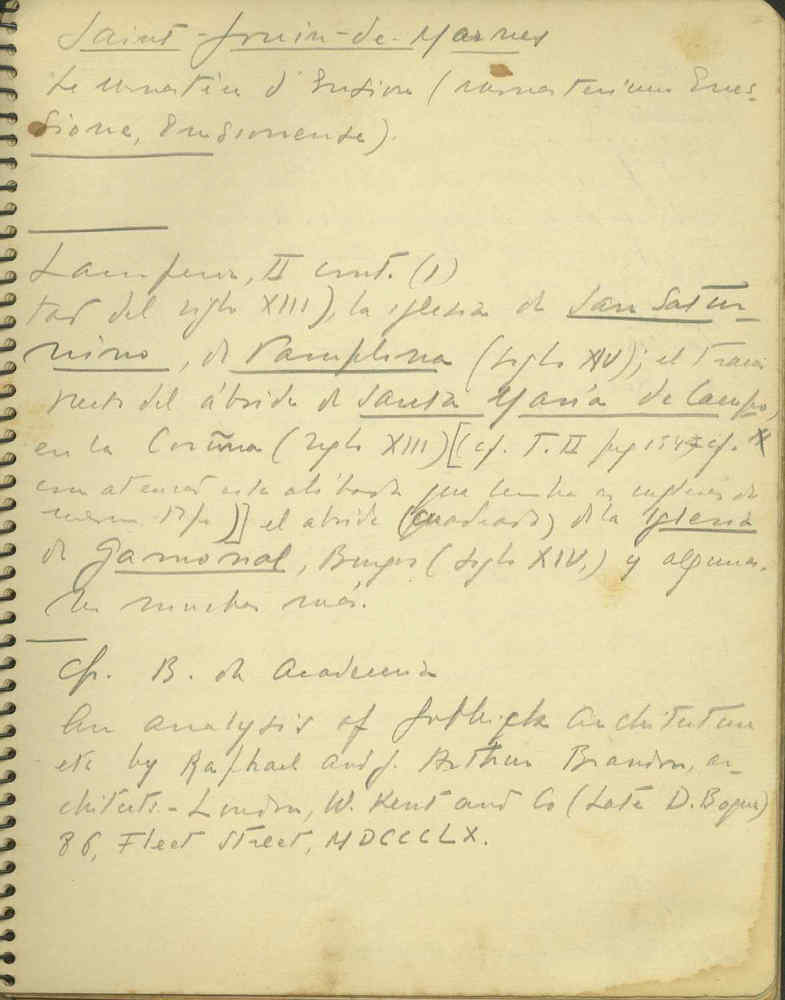 Saint-Jouin-de-Marnes
Le monastère d'Ension (monasterium Enes-
sione, Ensionense).
Lamperez, II cont. (1)
tad del siglo XIII), la iglesia de San Satur-
nino, de Pamplona (siglo XIV); el
del ábside de Santa María del Campo,
en la Coruña (siglo XIII) [(cf. T. II pag
)] el abside (cuadrado) de la Iglesia
de Gamonal, Burgos (siglo XIV,) y algunas.
muchas más.
Cf. B. de Academia
An analysis of Gothick Architecture
etc by Raphael and J. Arthur Brandon, ar-
chitects - London, W. Kent and Co (Late D. Bogue)
86, Fleet Street, MDCCCLX.